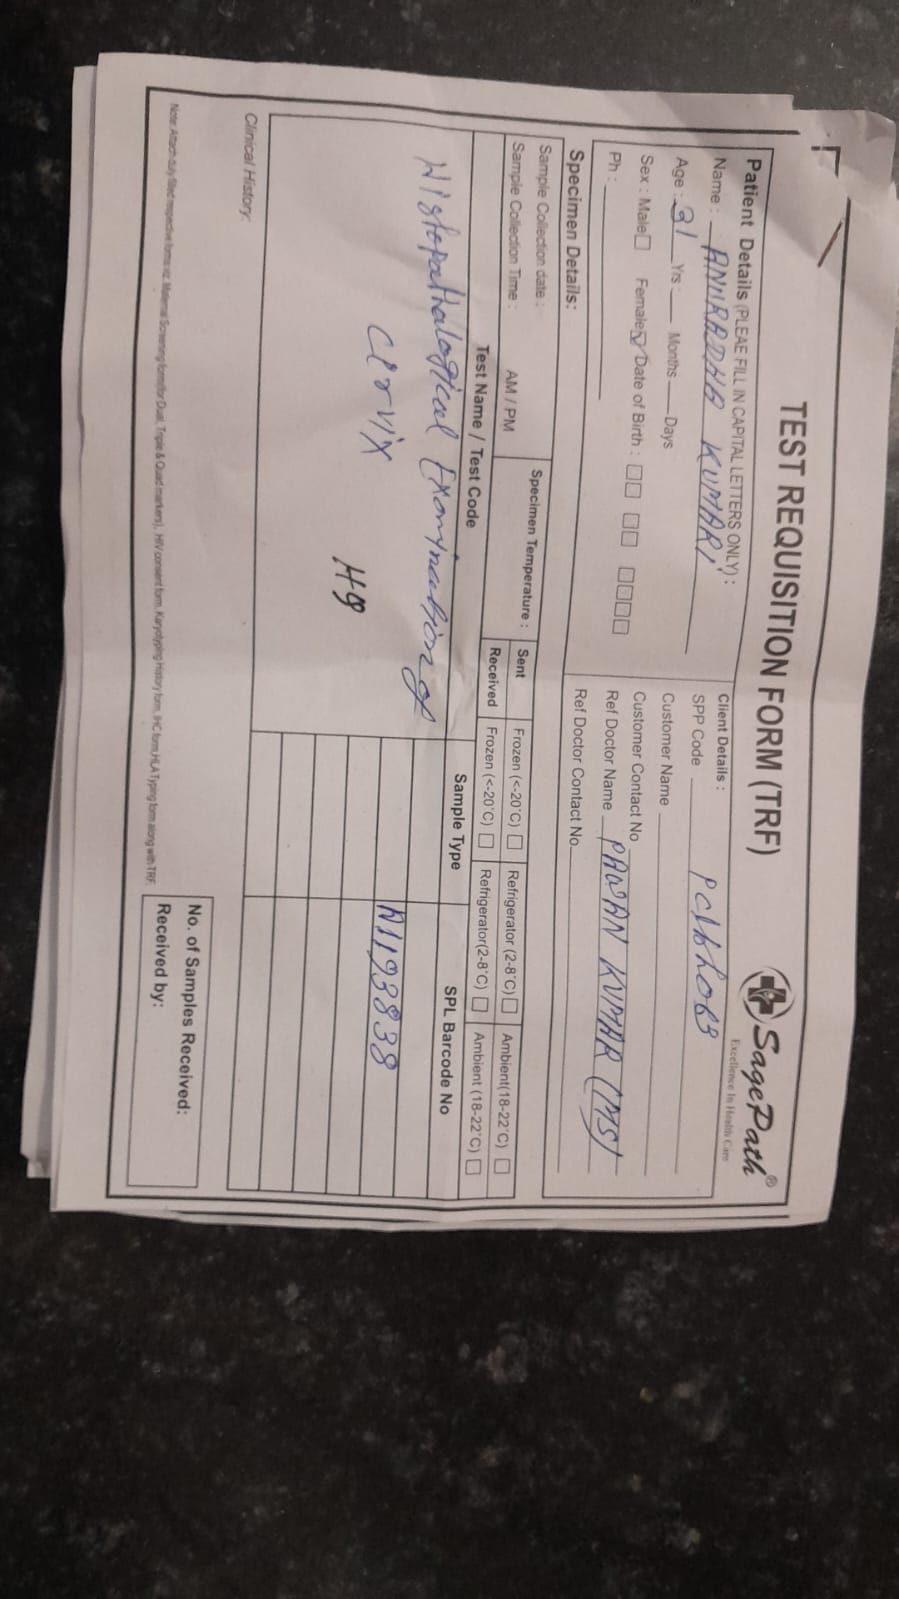 TEST REQUISITION FORM (TRF)
SagePath®
Excellence In Health Care
Patient Details (PLEAE FILL IN CAPITAL LETTERS ONLY) :
Name : ANURADHA KUMARI
Age : 31 Yrs : Months Days
Sex : Male Female Date of Birth :
Ph :
Client Details :
SPP Code
Customer Name
Customer Contact No
Ref Doctor Name PAWAN KUMAR (MS)
Ref Doctor Contact No
Specimen Details:
Sample Collection date :
Sample Collection Time : AM / PM
Specimen Temperature :
Sent Frozen (<-20°C) Refrigerator (2-8°C) Ambient(18-22°C)
Received Frozen (<-20°C) Refrigerator(2-8°C) Ambient (18-22°C)
Test Name / Test Code Sample Type SPL Barcode No
Histopathological Examination of
Cervix
A1193838
Clinical History:
Note: Attach duly filled respective forms viz. Maternal Screening form(for Dual, Triple & Quad markers), HIV consent form, Karyotyping History form, IHC form,HLA Typing form along with TRF.
No. of Samples Received:
Received by: